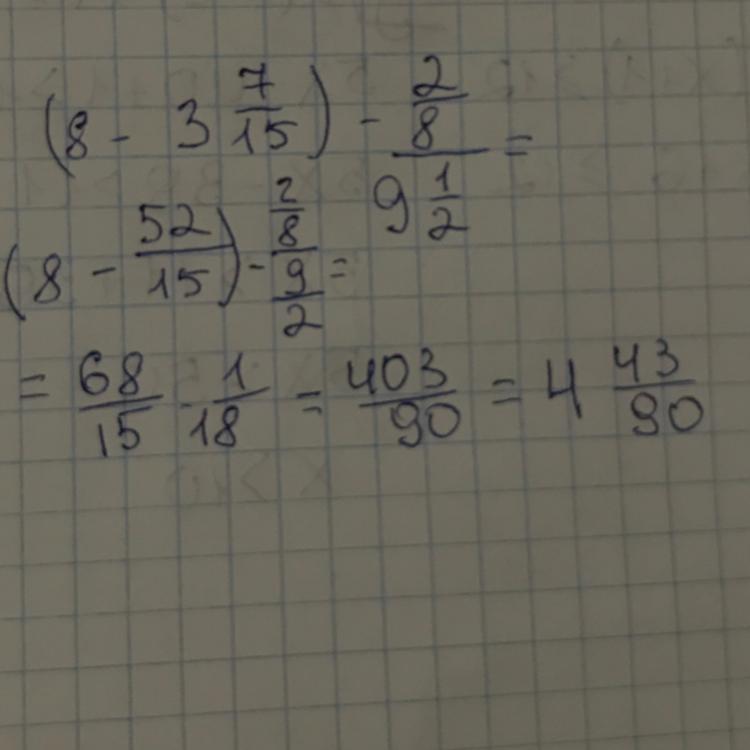 (8 - 3 7/15) - (2/8)/(9 1/2) =
(8 - 52/15) - (2/8)/(9/2) =
= 68/15 - 1/18 = 403/90 = 4 43/90